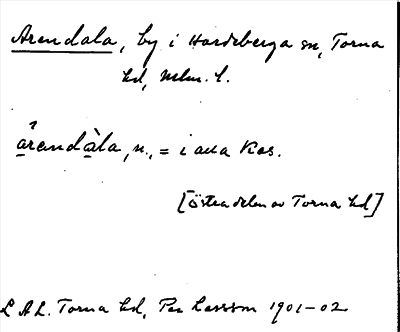 Arendala, by i Hardeberga sn, Torna
hd, Mlm. l.
ârendàla, n., = i alla Kas.
[Östra delen av Torna hd]
L A L. Torna hd, Per Larsson 1901-02